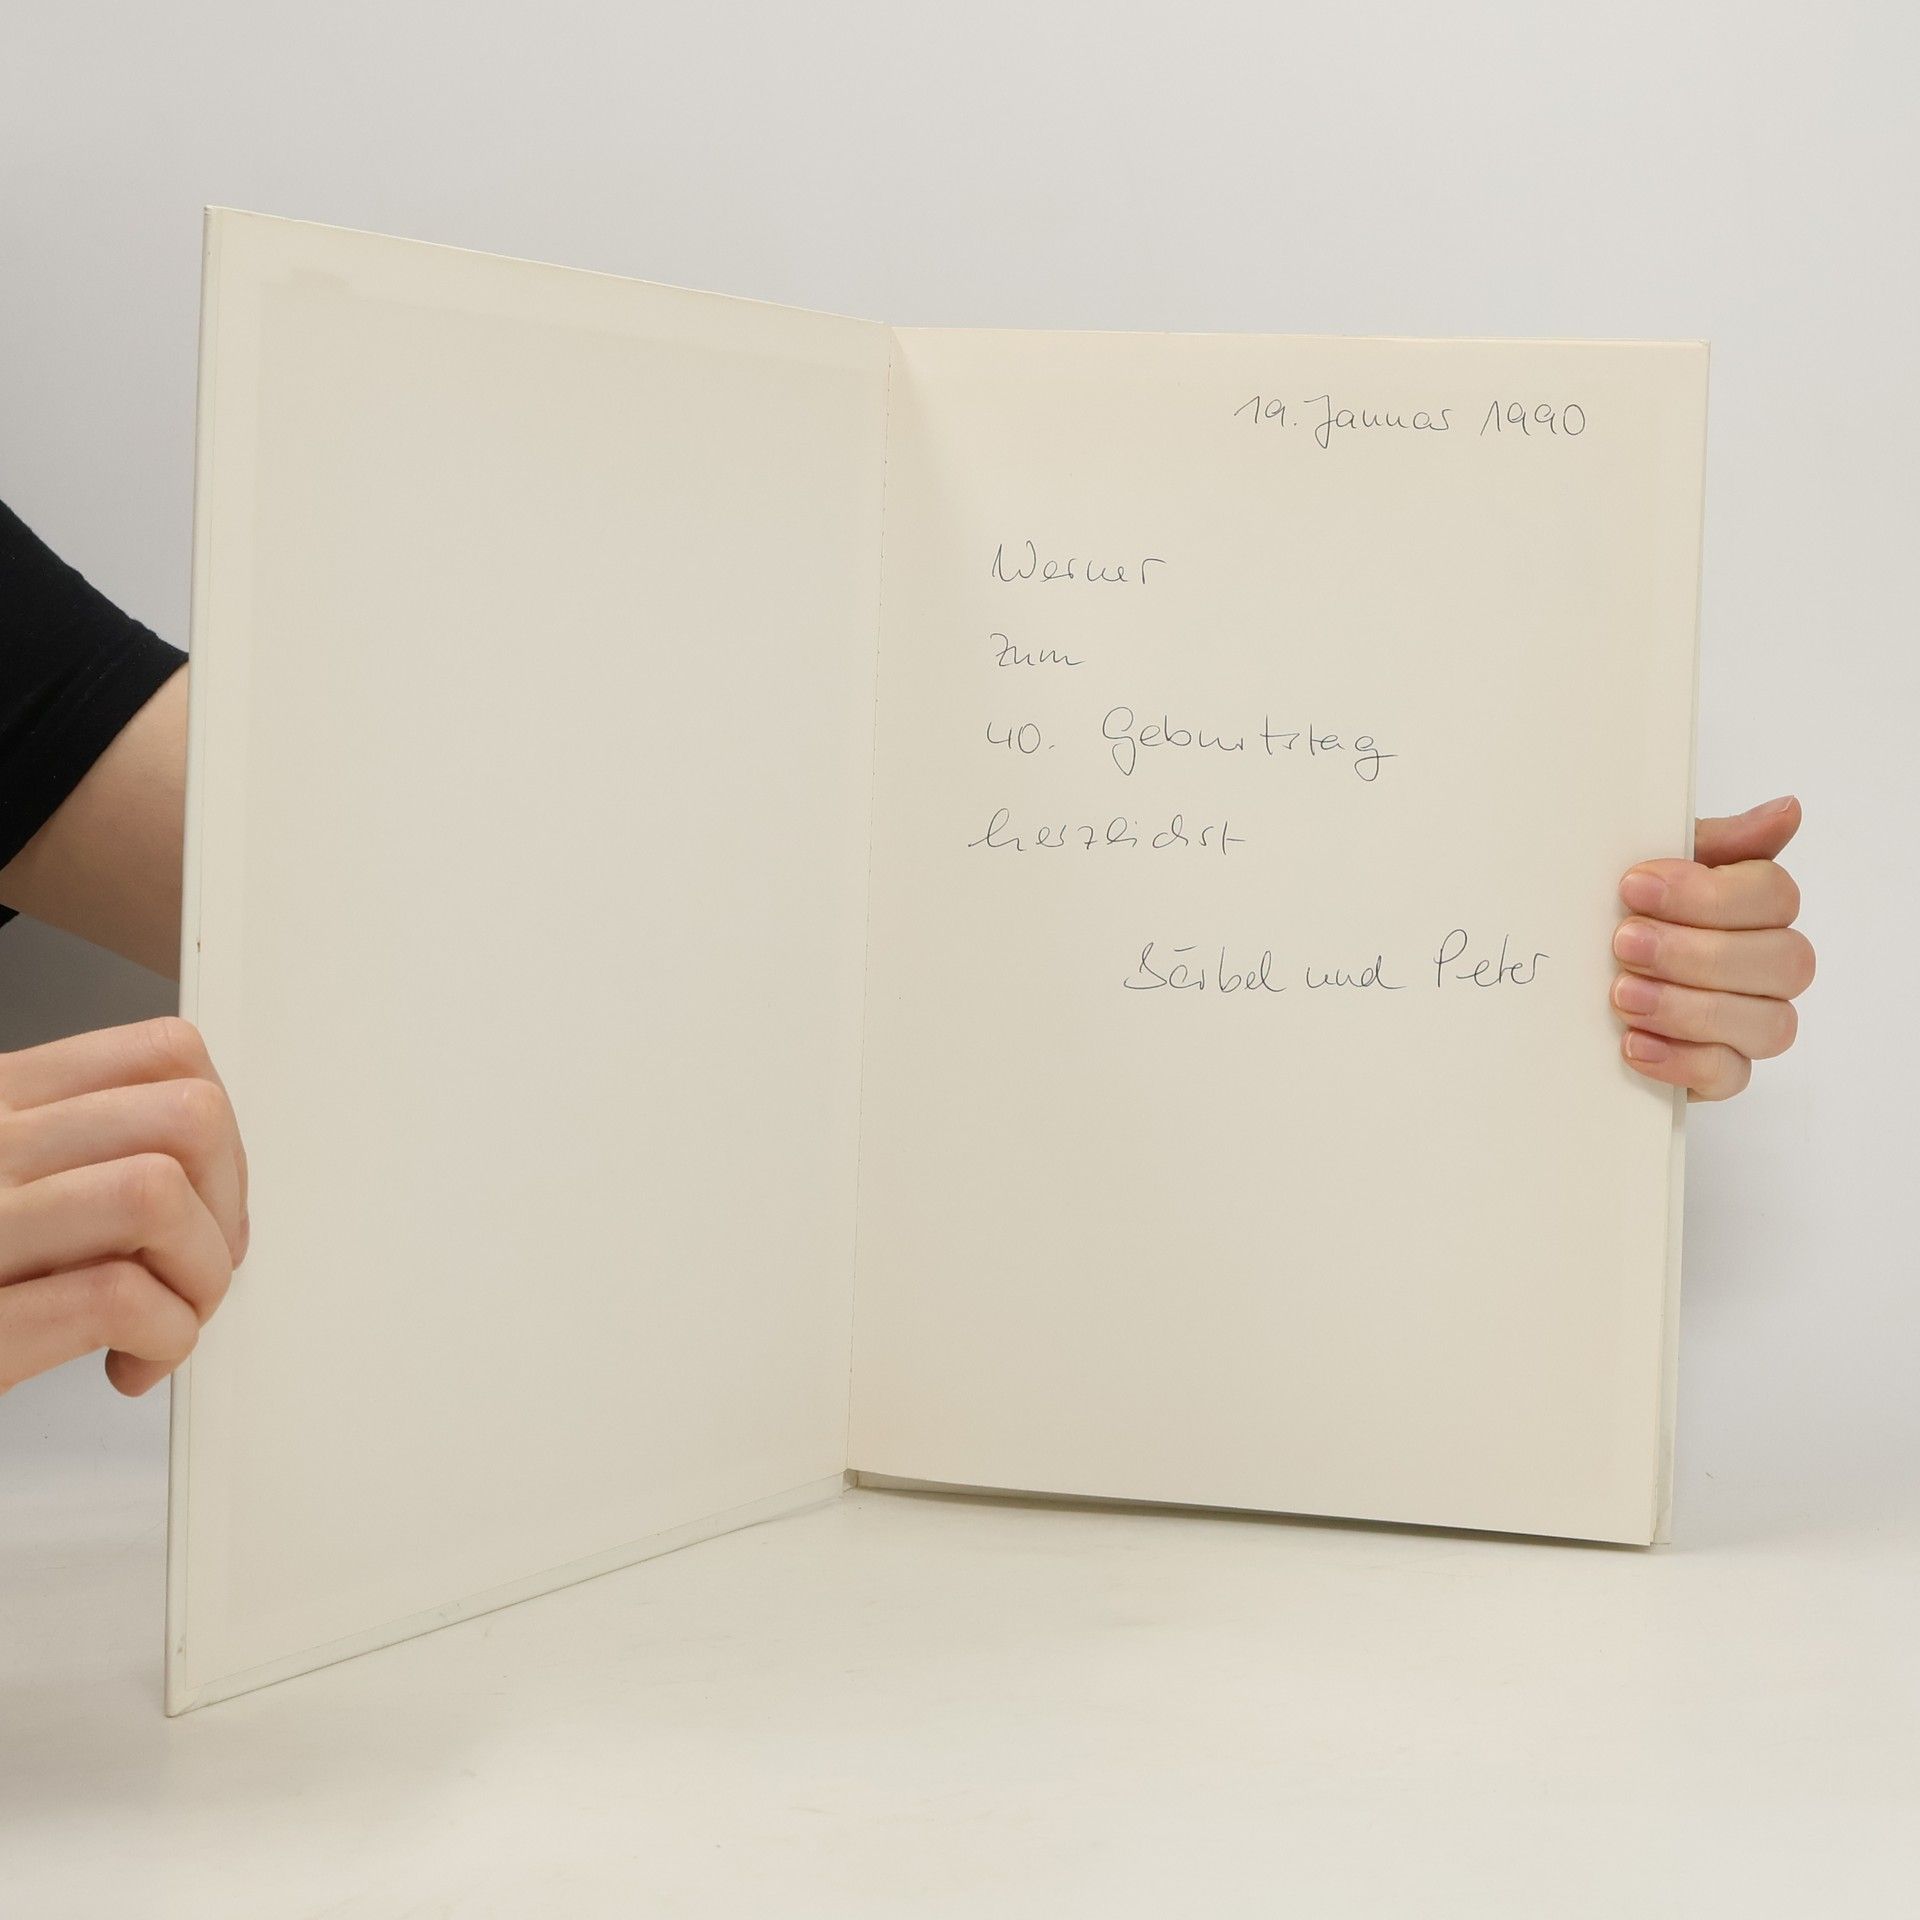 19. Januar 1990
Werner
zum
40. Geburtstag
herzlichst
Bärbel und Peter